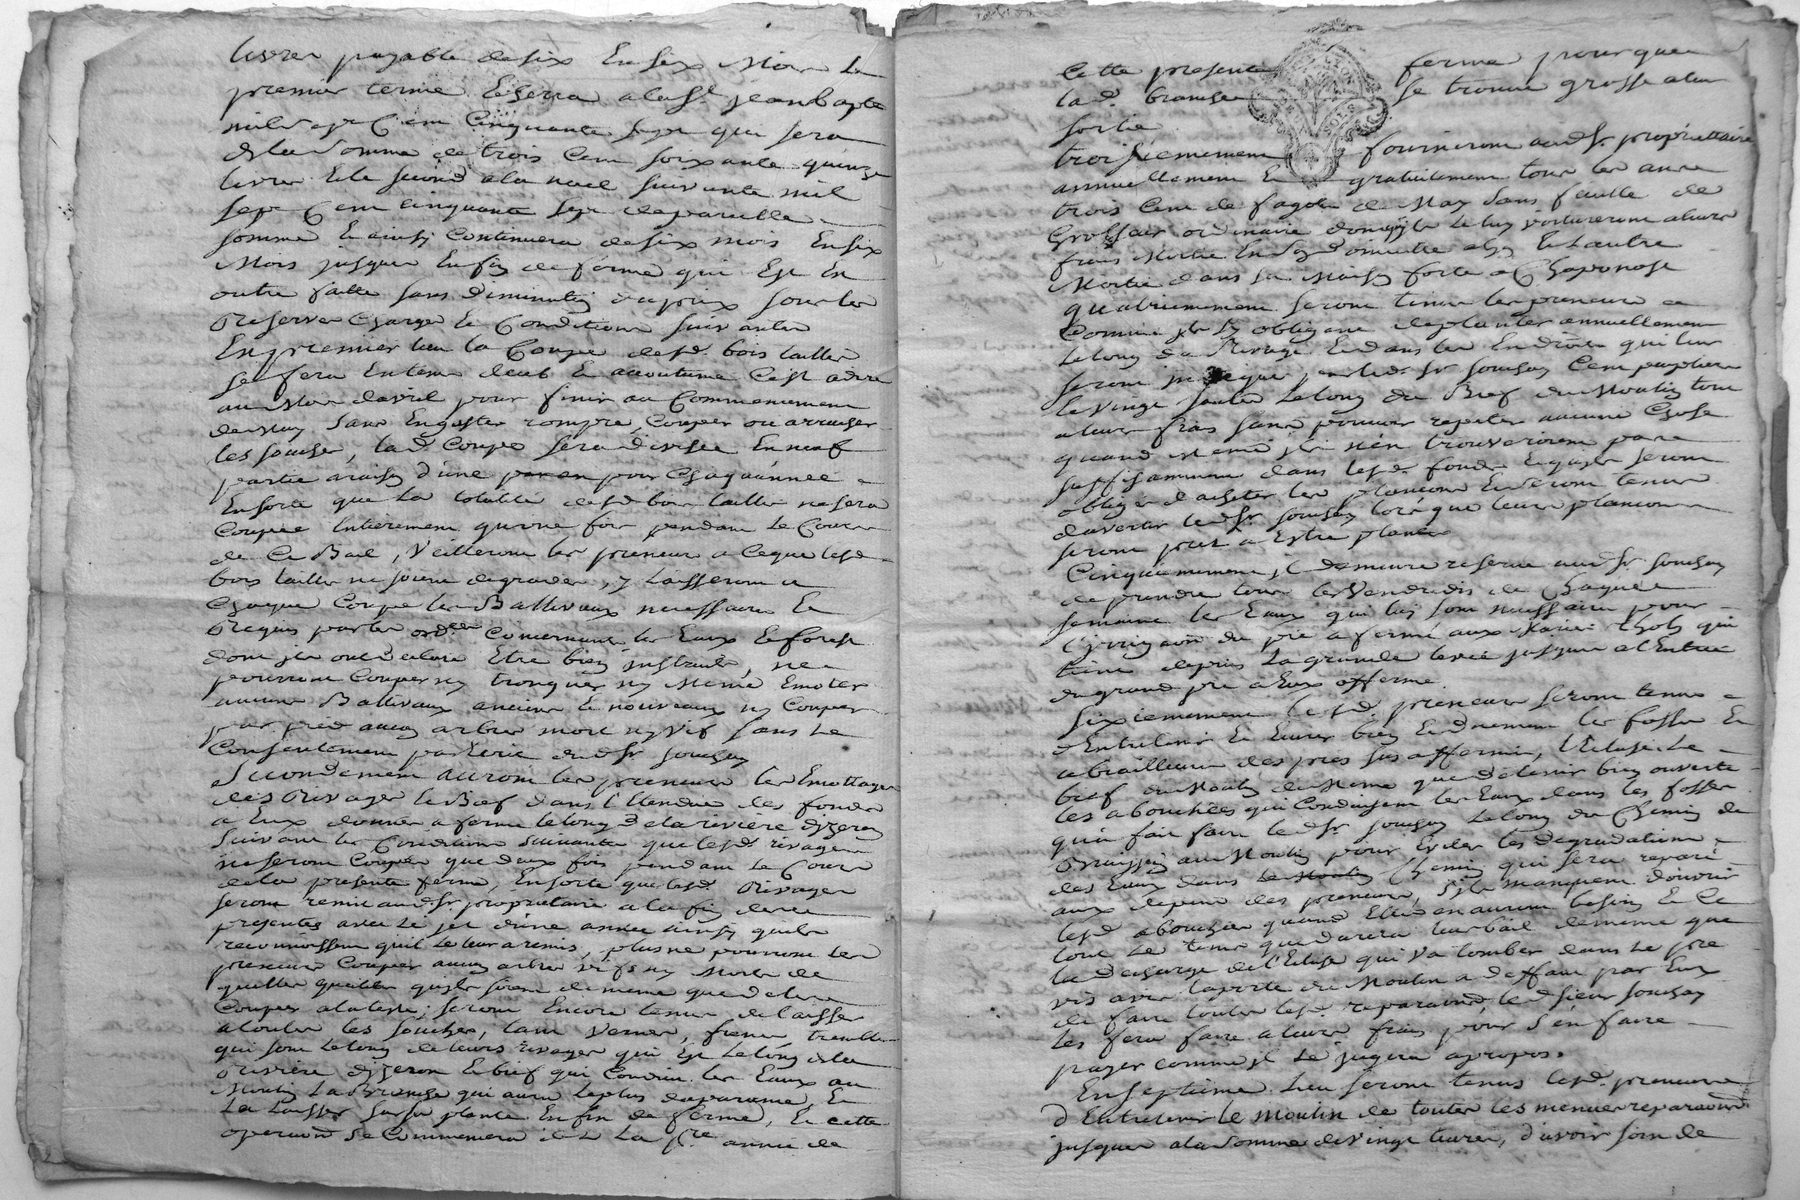 livres payable de six En six Mois Le
premier terme Echerra a la St jean bapte
mil sept Cent Cinquante sept qui sera
de la somme de trois Cent soixante quinze
livres Et le second a la noel suivante mil
sept Cent cinquante sept de pareille
somme Et ainsy Continuera de six mois En six
Mois jusques En fin de ferme qui Est En
outre faitte sans diminution du prix sous les
Reserves Charges Et Conditions suivantes
En premier lieu la Coupe desd. bois taillis
se fera En tems deub Et accoutumé C'est a dire
au Mois d'avril pour finir au Commencement
de May sans Engaster rompre, Couper ou arracher
les souches, lad. Coupe sera divisée En neuf
partie a raison d'une pour Chaqu'année
En sorte que La totalité desd. bois taillis ne sera
Coupée Entierement qu'une fois pendant Le Cours
de Ce Bail, Veilleront les preneurs a Ceque lesd.
bois taillis ne soient degradés, y Laisseront a
Chaque Coupe les Ballivaux necessaires Et
Requis par les ord.ces Concernant les Eaux Et forest
dont ils ont declaré Etre bien instruits, ne
pourront Couper ny tronquer ny Meme Emoter
aucuns Ballivaux anciens Et nouveaux ny Couper
par pied aucun arbres mort ny vif sans Le
Consentement par Ecrit dud. Sr souchay
Secondement auront les preneurs les Emottages
des Rivages Et Bief dans l'Etendue des fonds
a Eux donnés a ferme le long de la riviere d'izeron
Suivant les Conditions suivantes que lesd. rivages
ne seront Coupés que deux fois pendant Le Cours
de la presente ferme, En sorte que lesd. Rivages
seront remis aud. Sr. proprietaire a la fin de ces
presentes avec Le jet d'une année ainsy qu'ils
reconnoissent qu'il Le leur a remis, plus ne pourront les
preneurs Couper aucun arbres vifs ny Morts de
quelles qualités qu'ils soient de meme que de les
Couper a la teste, seront Encore tenus de laisser
a toutes les souches, tant vernes, frenes, trembles
qui sont Le long de leurs rivages qui Est Le long de la
Riviere d'izeron Et bief qui Conduit les Eaux au
Moulin La Branche qui aura Le plus d'aparance, Et
La Laisser sur sa plante En fin de ferme, Et cette
operaon se Commencera La pre. année de
Cette presente ferme pour que
lad. branche se trouve grosse a leur
sortie
troisiemement fourniront aud Sr. proprietaire
annuellement Et gratuitement tous les ans
trois Cent de fagots de May sans faille de
Grosseur ordinaire dont ils Le luy voitureront a leurs
frais Moitié En son domicile Et L'autre
Moitié dans sa Maison forte a Chaponost
quatriemement seront tenus les preneurs
Comme ils s'y obligent de planter annuellement
Le long du Rivage Et dans les Endroits qui leur
seront indiqués par led. Sr souchay Cent peupliers
Et vingt saules Le long du Bief du Moulin tout
a leurs frais sans pouvoir repeter aucune Chose
quand Meme ils n'en trouveroient pas
suffisamment dans lesd. fonds Et qu'ils seront
obligés d'acheter les plancons Et seront tenus
d'avertir led. Sr. souchay lors que leurs plancons
seront prets a Estre plantés
Cinquiemement il demeure reservé aud Sr souchay
de prendre tous les Vendredis de Chaque
semaine les Eaux qui luy sont necessaires pour
l'irrigaon du pré afermé aux Maries qui
tire depuis La grande levée jusques a l'Entrée
du grand pré a Eux affermé
Sixiemement lesd. preneurs seront tenus
d'Entretenir Et Curer bien Et duement les fossés Et
abrailleurs des prés sus affermés, l'Ecluse Le
bief du Moulin de Meme que de tenir bien ouverte
les abouchées qui Conduisent les Eaux dans les fosses
qu'a fait faire led Sr souchay Le long du Chemin de
Bruissin au Moulin pour Eviter les degradations
des Eaux dans Le Moulin Chemin qui sera reparé
aux depens des preneurs, s'ils manquent d'ouvrir
lesd. abouchées quand Elles en auront besoin Et Ce
tout Le tems que durera leur bail de meme que
la decharge de l'Ecluse qui va tomber dans Le pré
vis avis la porte du Moulin a deffaut par Eux
de faire toutes lesd. reparaons, led sieur souchay
Les fera faire a leurs frais pour s'en faire
payer comme il Le jugera apropos.
En septieme Lieu seront tenus lesd. preneurs
d'Entretenir Le moulin de toutes les menues reparaons
jusques a la somme de vingt livres, d'avoir soin de